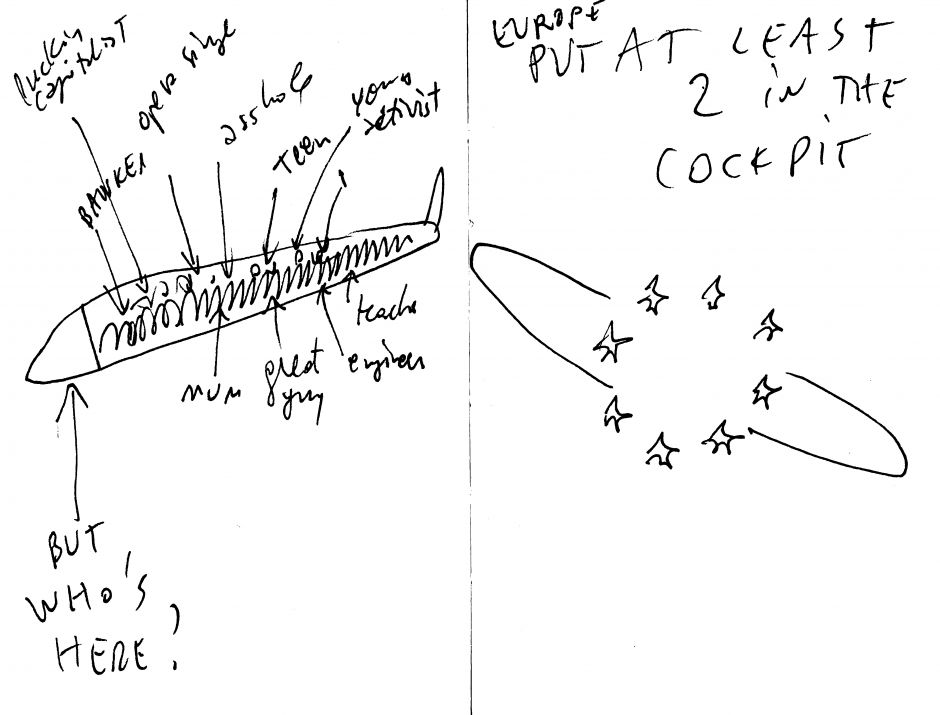 fuckin
capitalist
BANKER
opera singe
asshole
teen
young
activist
mum
great
guy
engineer
teache
BUT
WHO'S
HERE?
EUROPE
PUT AT LEAST
2 in THE
COCKPIT